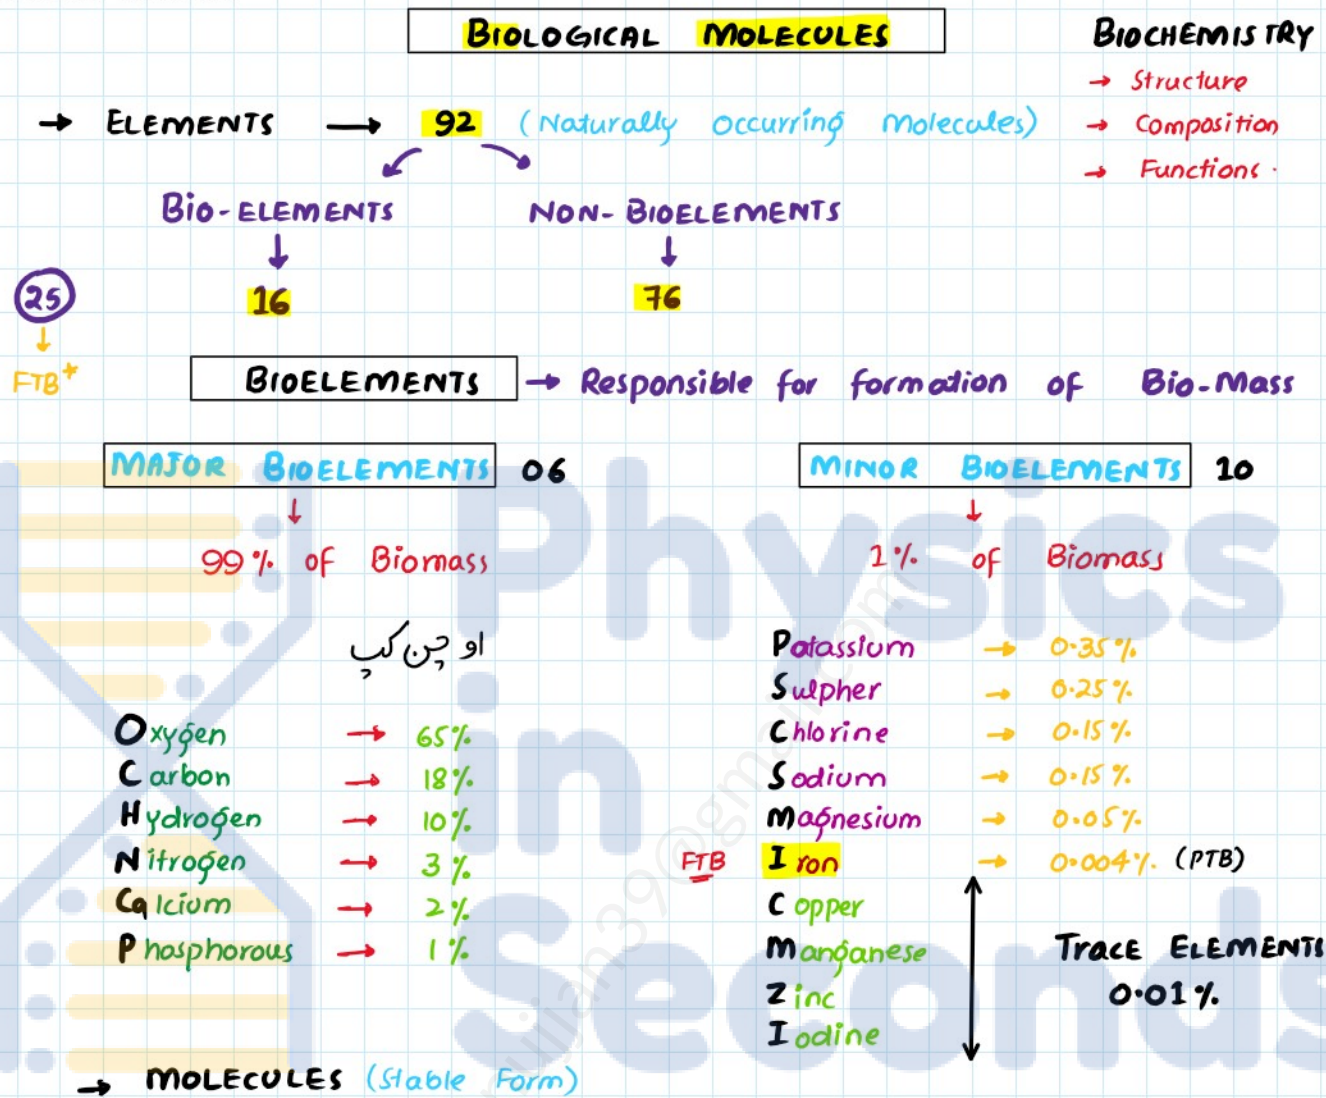 BIOLOGICAL MOLECULES
BIOCHEMISTRY
→ Structure
→ Composition
→ Functions.
→ ELEMENTS → 92 (Naturally Occurring Molecules)
Bio-ELEMENTS
NON-BIOELEMENTS
16
76
25
FTB*
BIOELEMENTS → Responsible for formation of Bio-Mass
MAJOR BIOELEMENTS 06
99% of Biomass
او چن کپ
Oxygen → 65%
Carbon → 18%
Hydrogen → 10%
Nitrogen → 3%
Calcium → 2%
Phosphorous → 1%
MINOR BIOELEMENTS 10
1% of Biomass
Potassium → 0.35%
Sulpher → 0.25%
Chlorine → 0.15%
Sodium → 0.15%
Magnesium → 0.05%
FTB Iron → 0.004% (PTB)
Copper
Manganese
Zinc
Iodine
Trace ELEMENTS
0.01%
→ MOLECULES (Stable Form)
Physics
in
Seconds